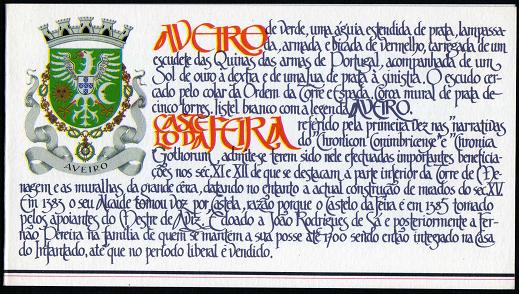 AVEIRO de verde, uma águia estendida de prata, lampassa-
da, armada e bicada de vermelho, carregada de um
escudete das Quinas das armas de Portugal, acompanhada de um
Sol de ouro à dextra e de uma lua de prata à sinistra. O escudo cer-
cado pelo colar da Ordem da Torre e Espada. Coroa mural de prata de
cinco torres, listel branco com a legenda AVEIRO.
AVEIRO
CASTE
LO DA FEIRA referido pela primeira vez nas "narrativas
do "Chronicon Conimbricense" e "Chronica
Gothorum", admite-se terem sido nele efectuadas importantes beneficia-
ções nos séc. XI e XII de que se destacam, a parte inferior da Torre de Me-
nagem e as muralhas da grande cêrca, datando no entanto a actual construção de meados do séc. XV.
Em 1383 o seu Alcaide tomou voz por Castela, razão porque o Castelo da Feira é em 1385 tomado
pelos apoiantes do Mestre de Aviz. É doado a João Rodrigues de Sá e posteriormente a Fer-
não Pereira na família de quem se mantém a sua posse até 1700 sendo então integrado na Casa
do Infantado, até que no período liberal é vendido.